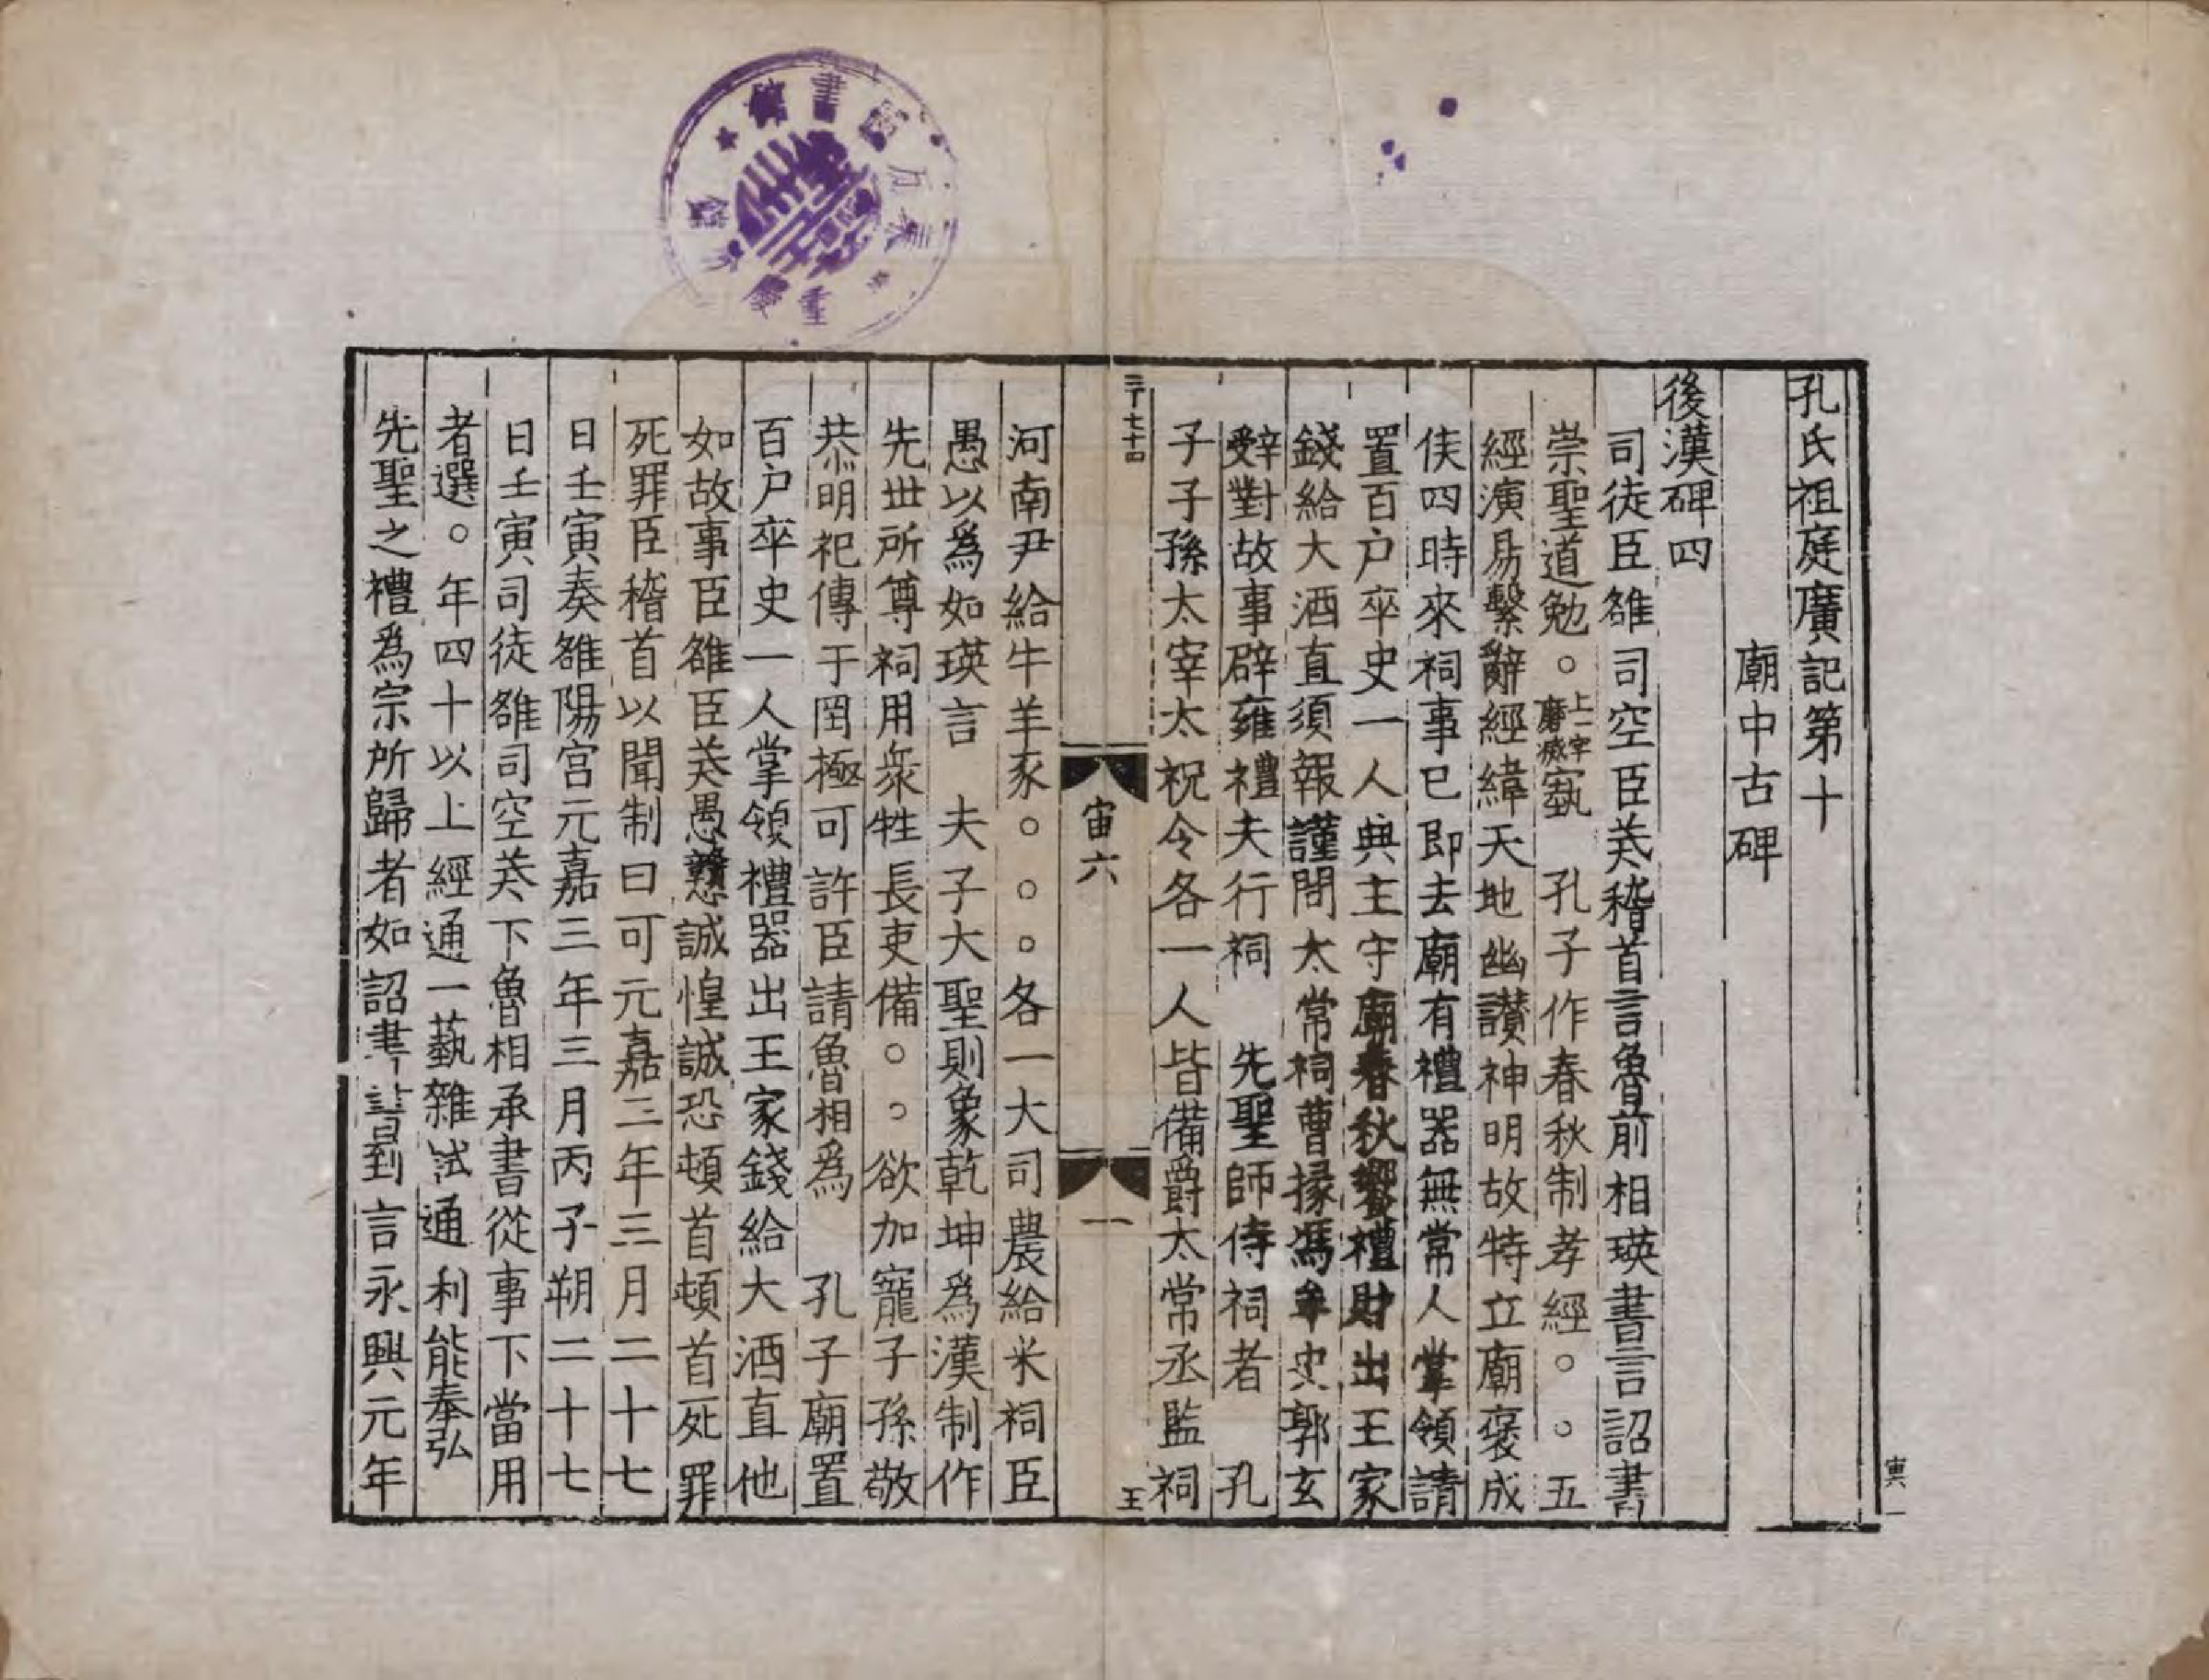 孔氏祖庭廣記第十
廟中古碑
後漢碑四
司徒臣雒司空臣羙稽首言魯前相瑛書言詔書
崇聖道勉○上一字磨滅埶　孔子作春秋制孝經○○五
經演易繫辭經緯天地幽讃神明故特立廟褒成
侯四時來祠事已即去廟有禮器無常人掌領請
置百户卒史一人典主守廟春秋饗禮財出王家
錢給大酒直須報謹問太常祠曹掾馮牟史郭玄
辤對故事辟雍禮夫行祠　先聖師侍祠者　孔
子子孫太宰太祝令各一人皆備爵太常丞監祠
二千七十四
宙六
一
王
河南尹給牛羊豕○○○各一大司農給米祠臣
愚以為如瑛言　夫子大聖則象乾坤為漢制作
先世所尊祠用衆牲長吏備○○欲加寵子孫敬
恭明祀傳于罔極可許臣請魯相為　孔子廟置
百户卒史一人掌領禮器出王家錢給大酒直他
如故事臣雒臣羙愚戇誠惶誠恐頓首頓首死罪
死罪臣稽首以聞制曰可元嘉三年三月二十七
日壬寅奏雒陽宮元嘉三年三月丙子朔二十七
日壬寅司徒雒司空羙下魯相承書從事下當用
者選○年四十以上經通一藝雜試通利能奉弘
先聖之禮為宗所歸者如詔書書到言永興元年
寅一